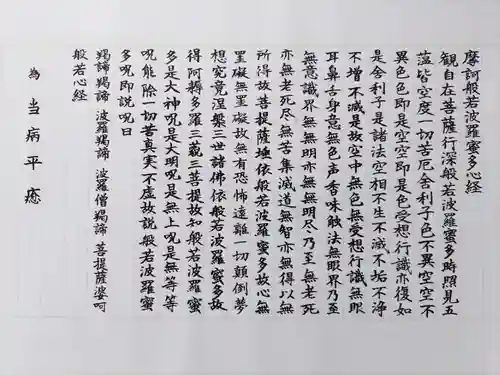 摩訶般若波羅蜜多心経
観自在菩薩行深般若波羅蜜多時照見五
蘊皆空度一切苦厄舎利子色不異空空不
異色色即是空空即是色受想行識亦復如
是舎利子是諸法空相不生不滅不垢不浄
不増不減是故空中無色無受想行識無眼
耳鼻舌身意無色声香味触法無眼界乃至
無意識界無無明亦無無明尽乃至無老死
亦無老死尽無苦集滅道無智亦無得以無
所得故菩提薩埵依般若波羅蜜多故心無
罣礙無罣礙故無有恐怖遠離一切顛倒夢
想究竟涅槃三世諸佛依般若波羅蜜多故
得阿耨多羅三藐三菩提故知般若波羅蜜
多是大神呪是大明呪是無上呪是無等等
呪能除一切苦真実不虚故説般若波羅蜜
多呪即説呪曰
羯諦羯諦 波羅羯諦 波羅僧羯諦 菩提薩婆呵
般若心経
為 当病平癒